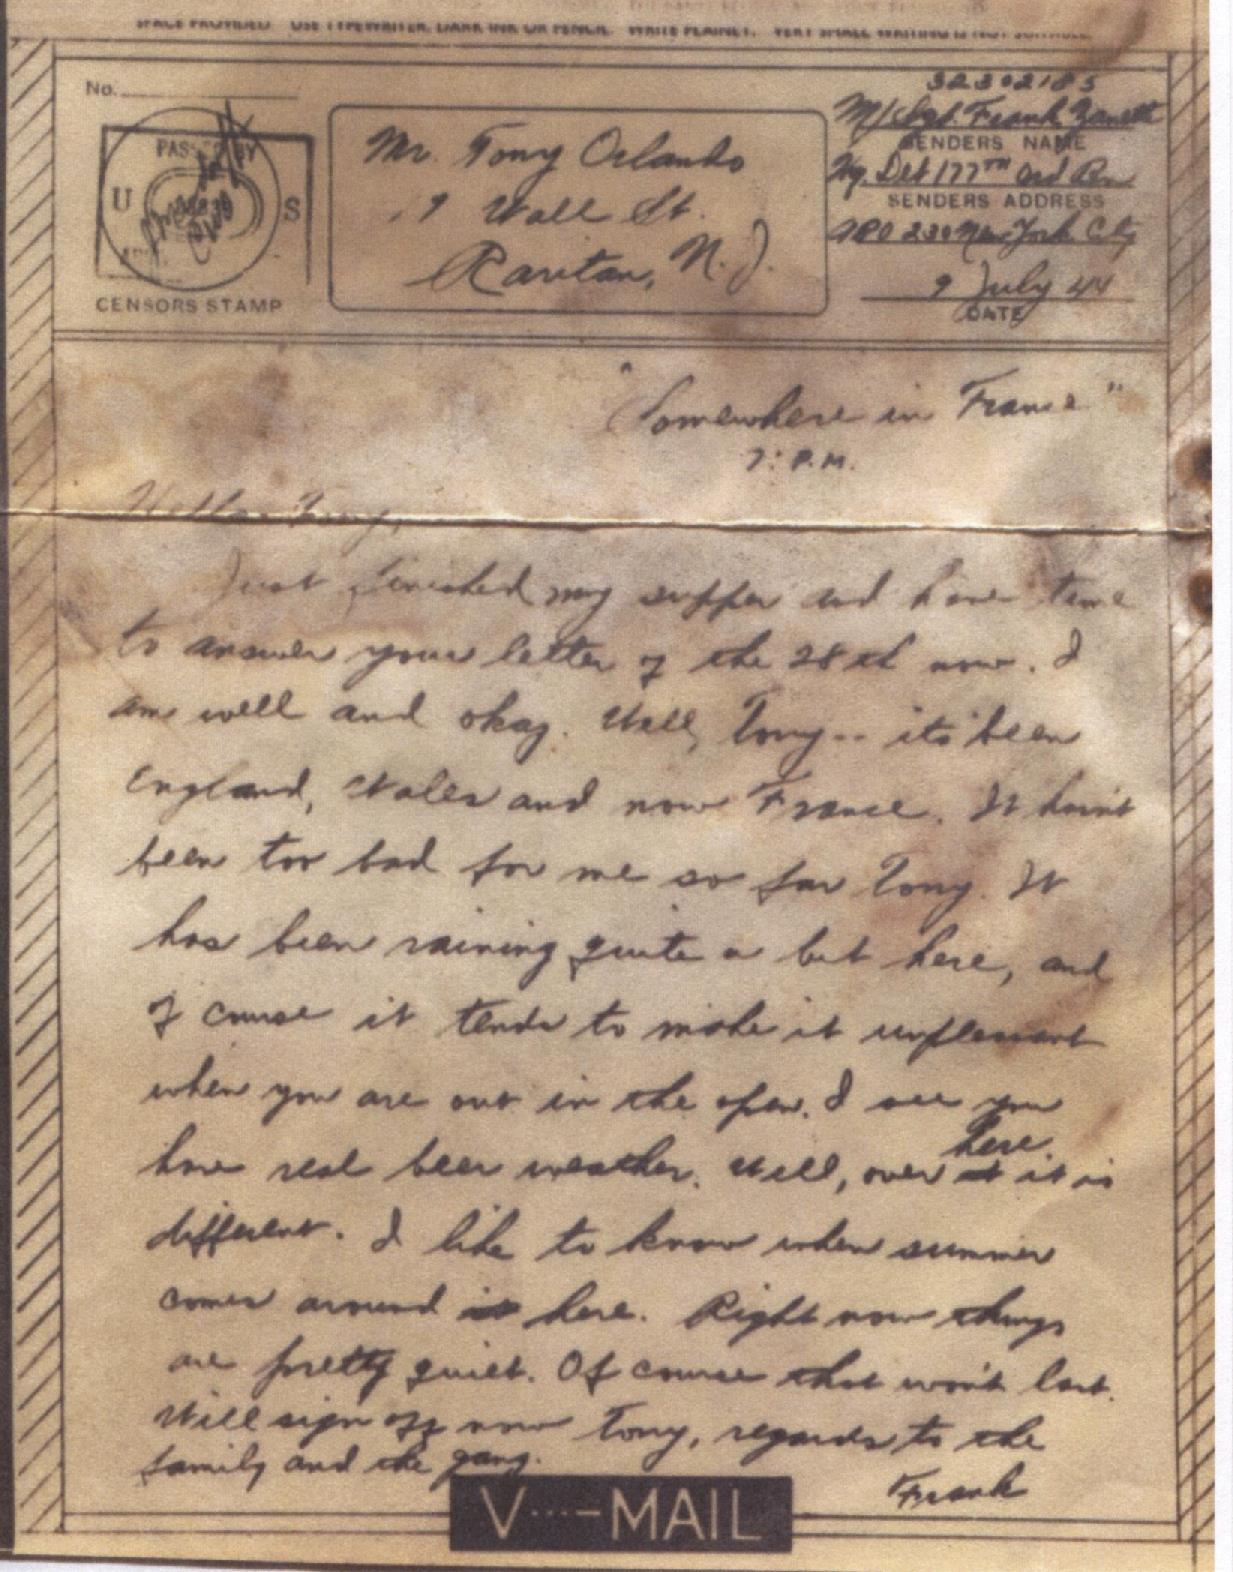 SPACE PROVIDED USE TYPEWRITER, DARK INK OR PENCIL. WRITE PLAINLY. VERY SMALL WRITING IS NOT SUITABLE.
No.
PASSED BY
U S
CENSORS STAMP
Mr. Tony Orlando
9 Wall St.
Raritan, N. J.
32302185
M/Sgt. Frank
SENDERS NAME
Hq. Det 177TH Ord Bn
SENDERS ADDRESS
APO 230 New York City
9 July 44
DATE
"Somewhere in France"
7: P.M.
Hello Tony,
Just finished my supper and have time
to answer your letter of the 28th now. I
am well and okay. Well, Tony-- its been
England, Wales and now France. It hasn't
been too bad for me so far Tony. It
has been raining quite a bit here, and
of course it tends to make it unpleasant
when you are out in the open. I see you
have real beer weather. Well, over here it is
different. I like to know when summer
comes around here. Right now things
are pretty quiet. Of course that won't last.
Will sign off now Tony, regards to the
family and the gang.
Frank
V···—MAIL